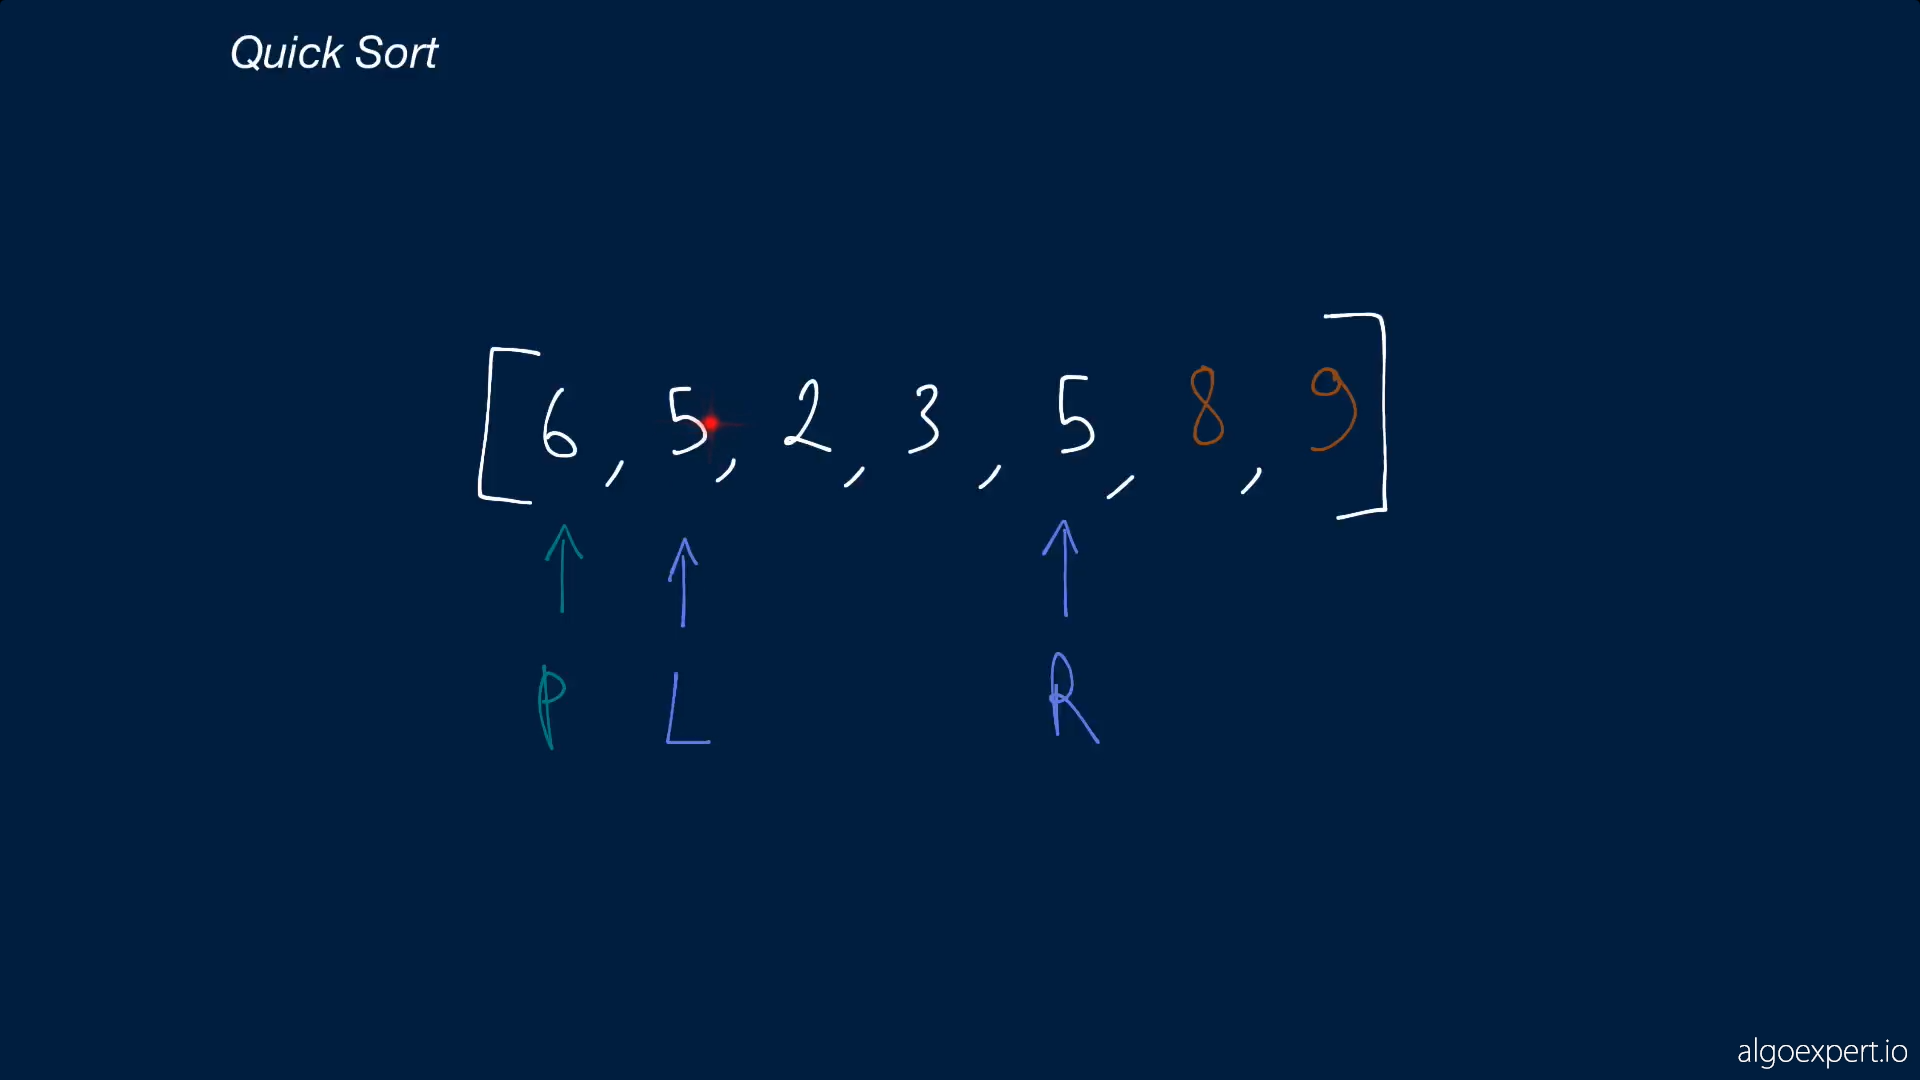 Quick Sort
[6, 5, 2, 3, 5, 8, 9]
P L R
algoexpert.io